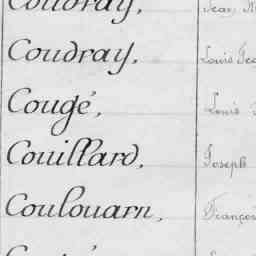 Coudray, Jean
Coudray, Louis
Cougé, Louis
Couillard, Joseph
Coulouarn,